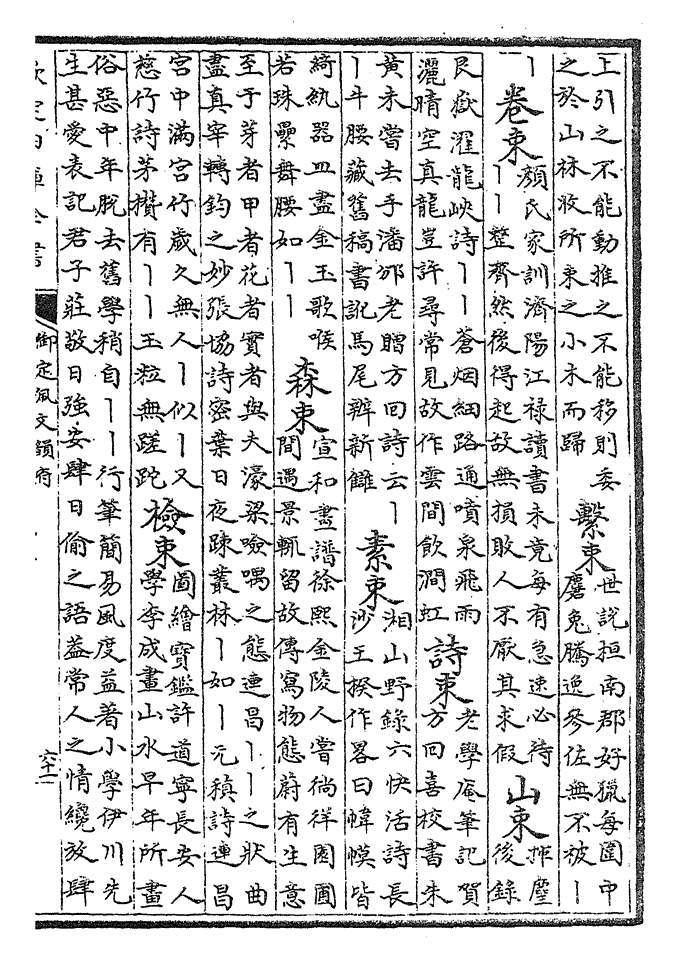 上引之不能動推之不能移則委
之於山林收所束之小木而歸
繫束
世說桓南郡好獵每圍中
麏兔騰逸參佐無不被丨
丨
卷束
顏氏家訓濟陽江禄讀書未竟每有急速必待
丨丨整齊然後得起故無損敗人不厭其求假
山束
揮麈
後錄
艮嶽濯龍峽詩丨丨蒼烟細路通噴泉飛雨
灑晴空真龍豈許尋常見故作雲間飲澗虹
詩束
老學庵筆記賀
方回喜校書朱
黄未嘗去手潘邠老贈方回詩云丨
丨斗腰藏舊稿書訛馬尾辨新讎
素束
湘山野錄六快活詩長
沙王揆作畧曰幃幙皆
綺紈器皿盡金玉歌喉
若珠纍舞腰如丨丨
森束
宣和畫譜徐熙金陵人嘗徜徉園圃
間遇景輒留故傳寫物態蔚有生意
至于芽者甲者花者實者與夫濠梁噞喁之態連昌丨丨之狀曲
盡真宰轉鈞之妙張協詩密葉日夜踈叢林丨如丨元稹詩連昌
宮中滿宮竹歲久無人丨似丨又
慈竹詩茅攢有丨丨玉粒無蹉跎
檢束
圖繪寶鑑許道寧長安人
學李成畫山水早年所畫
俗惡中年脫去舊學稍自丨丨行筆簡易風度益著小學伊川先
生甚愛表記君子莊敬日強安肆日偷之語葢常人之情纔放肆
欽定四庫全書
御定佩文韻府
六十二